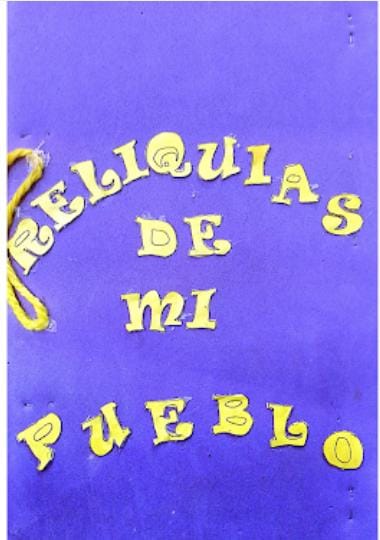 RELIQUIAS
DE
MI
PUEBLO